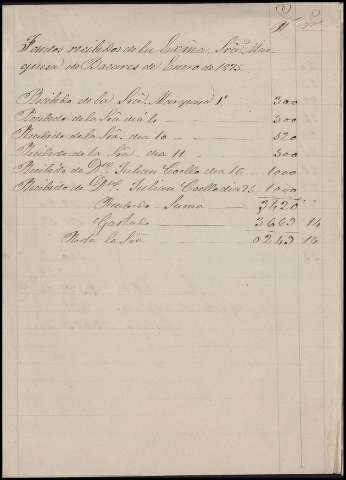 Fondos recibidos de la Exma. Sra. Mar
quesa de Bacares de Enero de 1875
Recibido de la Sra. Marquesa 1º 300
Recibido de la Sra. dia 4 300
Recibido de la Sra. dia 10 520
Recibido de la Sra. dia 11 300
Recibido de Dn. Julian Coello dia 16 1000
Recibido de Dn. Julian Coello dia 25 1000
Recibido Suma 3420
Gastado 3663 14
Resta la Sra. 0243 14